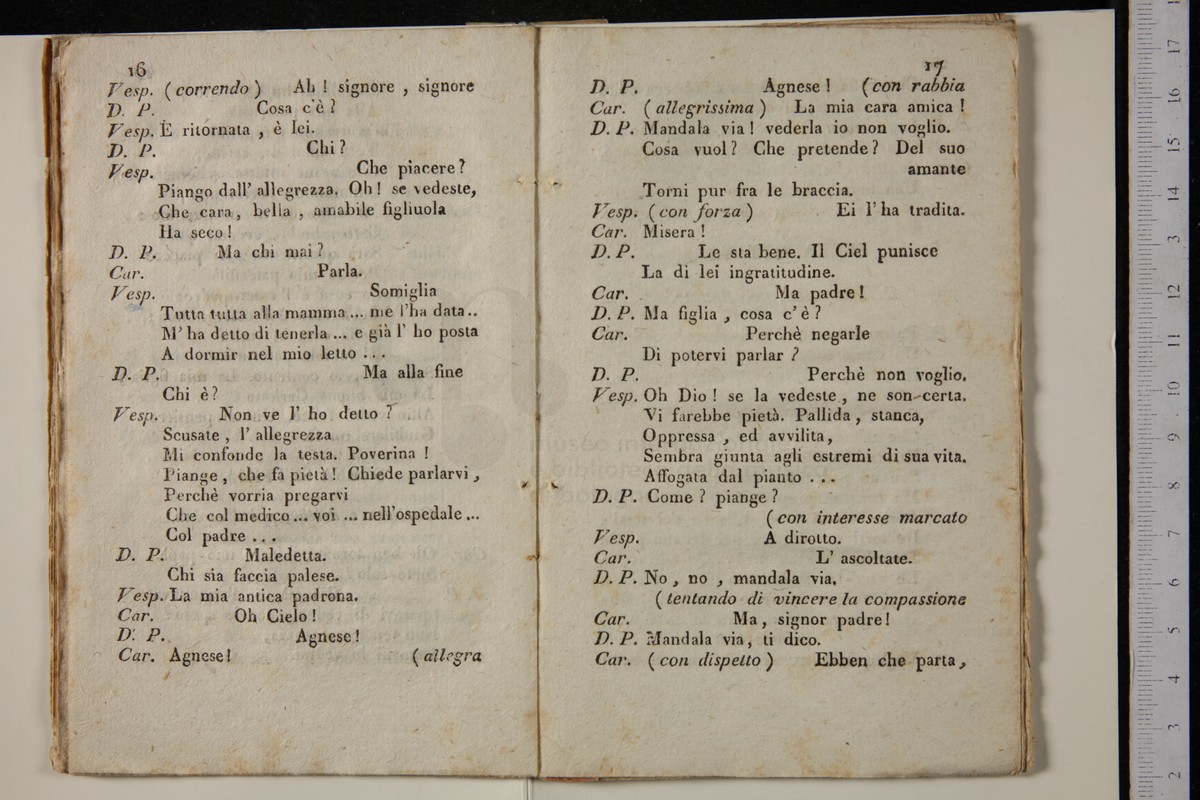 16
Vesp. ( correndo ) Ah ! signore , signore
D. P. Cosa c'è ?
Vesp. È ritornata , è lei.
D. P. Chi ?
Vesp. Che piacere ?
Piango dall' allegrezza. Oh ! se vedeste,
Che cara , bella , amabile figliuola
Ha seco !
D. P. Ma chi mai ?
Car. Parla.
Vesp. Somiglia
Tutta tutta alla mamma ... me l'ha data ..
M' ha detto di tenerla ... e già l' ho posta
A dormir nel mio letto . . .
D. P. Ma alla fine
Chi è ?
Vesp. Non ve l' ho detto ?
Scusate , l' allegrezza
Mi confonde la testa. Poverina !
Piange , che fa pietà ! Chiede parlarvi ,
Perchè vorria pregarvi
Che col medico ... voi ... nell'ospedale ...
Col padre . . .
D. P. Maledetta.
Chi sia faccia palese.
Vesp. La mia antica padrona.
Car. Oh Cielo !
D. P. Agnese !
Car. Agnese ! ( allegra
17
D. P. Agnese ! ( con rabbia
Car. ( allegrissima ) La mia cara amica !
D. P. Mandala via ! vederla io non voglio.
Cosa vuol ? Che pretende ? Del suo
amante
Torni pur fra le braccia.
Vesp. ( con forza ) Ei l' ha tradita.
Car. Misera !
D. P. Le sta bene. Il Ciel punisce
La di lei ingratitudine.
Car. Ma padre !
D. P. Ma figlia , cosa c' è ?
Car. Perchè negarle
Di potervi parlar ?
D. P. Perchè non voglio.
Vesp. Oh Dio ! se la vedeste , ne son certa.
Vi farebbe pietà. Pallida , stanca,
Oppressa , ed avvilita,
Sembra giunta agli estremi di sua vita.
Affogata dal pianto . . .
D. P. Come ? piange ?
( con interesse marcato
Vesp. A dirotto.
Car. L' ascoltate.
D. P. No , no , mandala via.
( tentando di vincere la compassione
Car. Ma , signor padre !
D. P. Mandala via , ti dico.
Car. ( con dispetto ) Ebben che parta ,
2 3 4 5 6 7 8 9 10 11 12 13 14 15 16 17